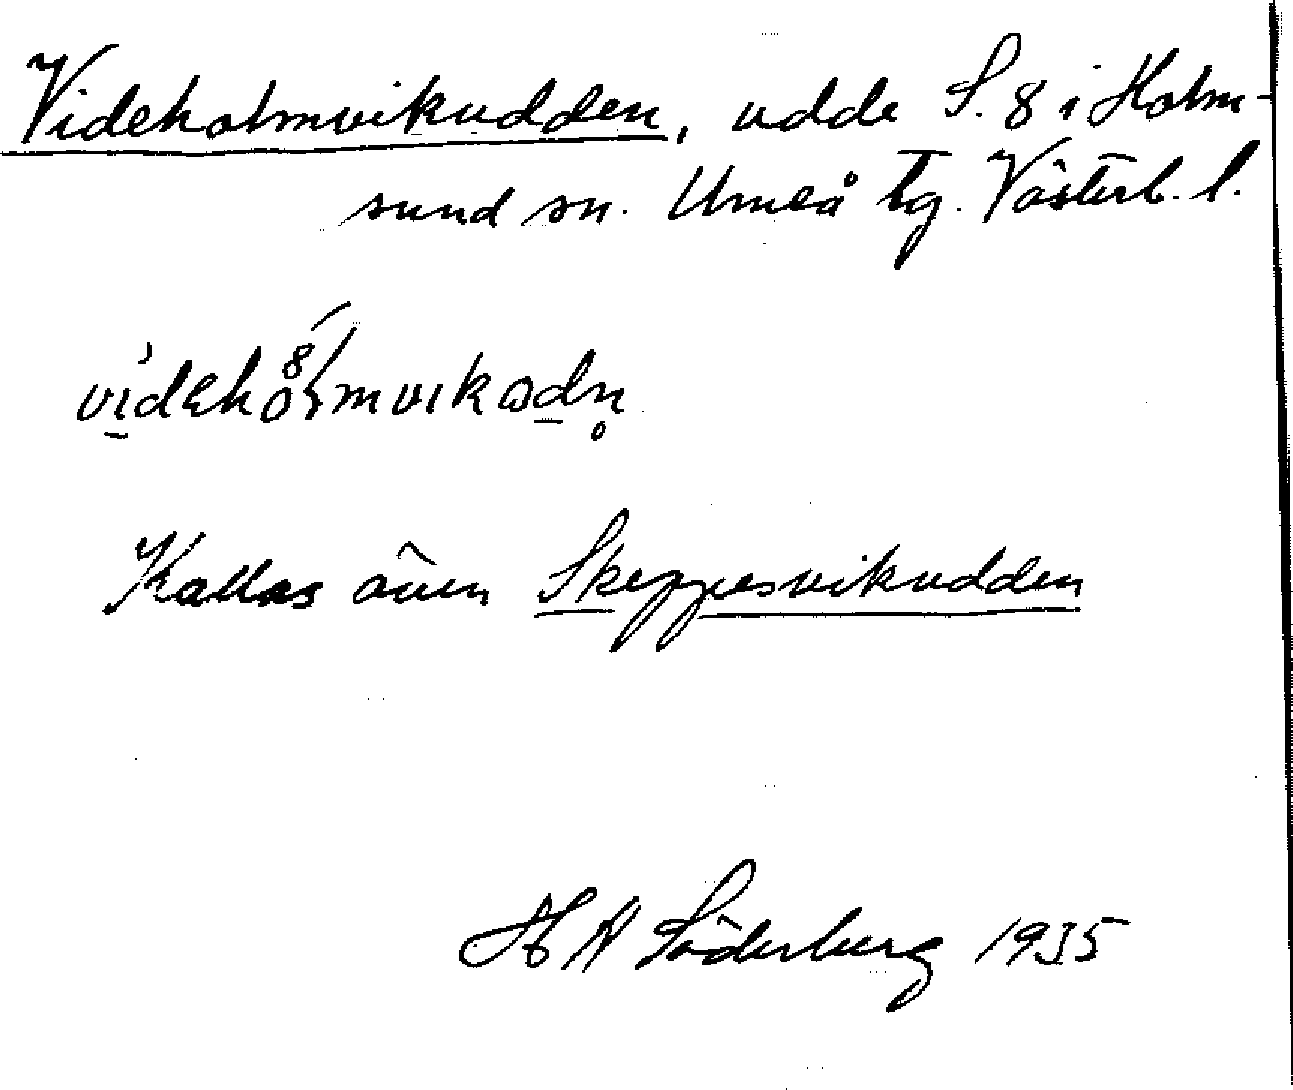 Videholmvikudden, udde S. 8 i Holm-
sund sn. Umeå tg. Västerb. l.
Kallas även Skeppsvikudden
H A Söderberg 1935